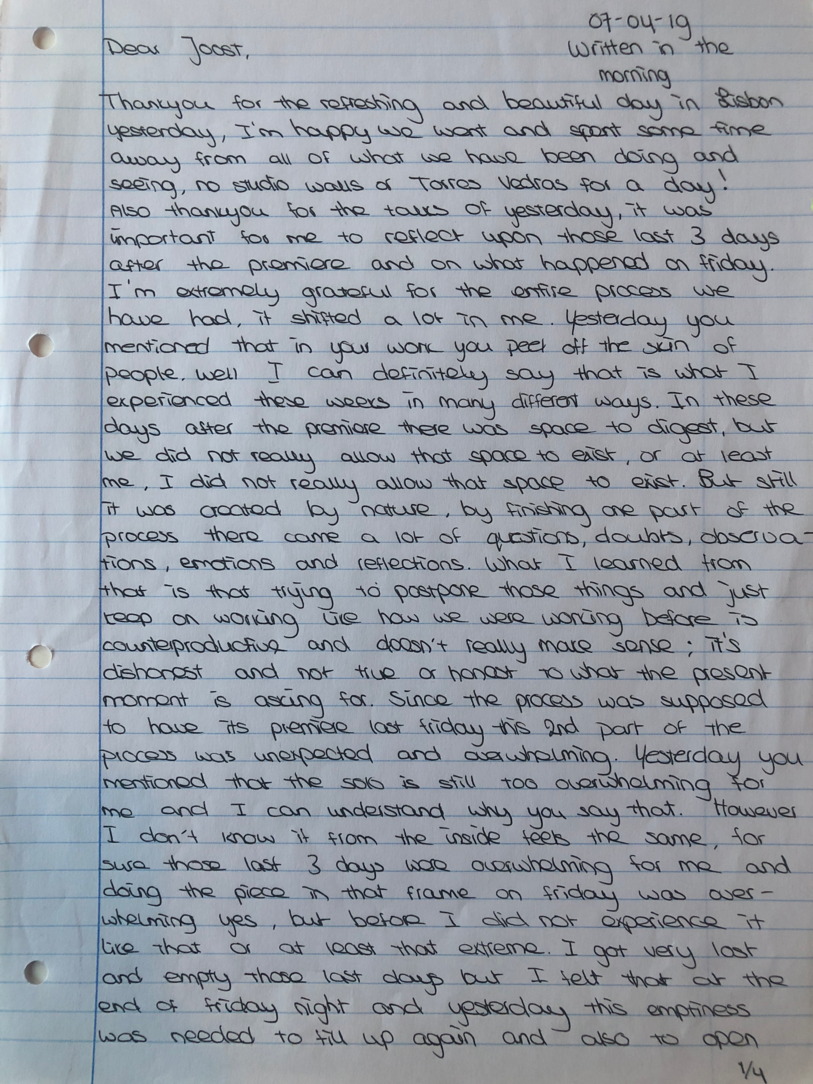 07-04-19
Dear Joost,
Written in the
morning
Thankyou for the refreshing and beautiful day in Lisbon
yesterday, I'm happy we went and spent some time
away from all of what we have been doing and
seeing, no studio walls or Torres Vedras for a day!
Also thankyou for the talks of yesterday, it was
important for me to reflect upon those last 3 days
after the premiere and on what happened on friday.
I'm extremely grateful for the entire process we
have had, it shifted a lot in me. Yesterday you
mentioned that in your work you peel off the skin of
people. well I can definitely say that is what I
experienced these weeks in many different ways. In these
days after the premiere there was space to digest, but
we did not really allow that space to exist, or at least
me, I did not really allow that space to exist. But still
it was created by nature, by finishing one part of the
process there came a lot of questions, doubts, observa-
tions, emotions and reflections. What I learned from
that is that trying to postpone those things and just
keep on working like how we were working before is
counterproductive and doesn't really make sense; it's
dishonest and not true or honest to what the present
moment is asking for. Since the process was supposed
to have its premiere last friday this 2nd part of the
process was unexpected and overwhelming. Yesterday you
mentioned that the solo is still too overwhelming for
me and I can understand why you say that. However
I don't know if from the inside feels the same, for
sure those last 3 days were overwhelming for me and
doing the piece in that frame on friday was over-
whelming yes, but before I did not experience it
like that or at least that extreme. I got very lost
and empty those last days but I felt that at the
end of friday night and yesterday this emptiness
was needed to fill up again and also to open
1/4